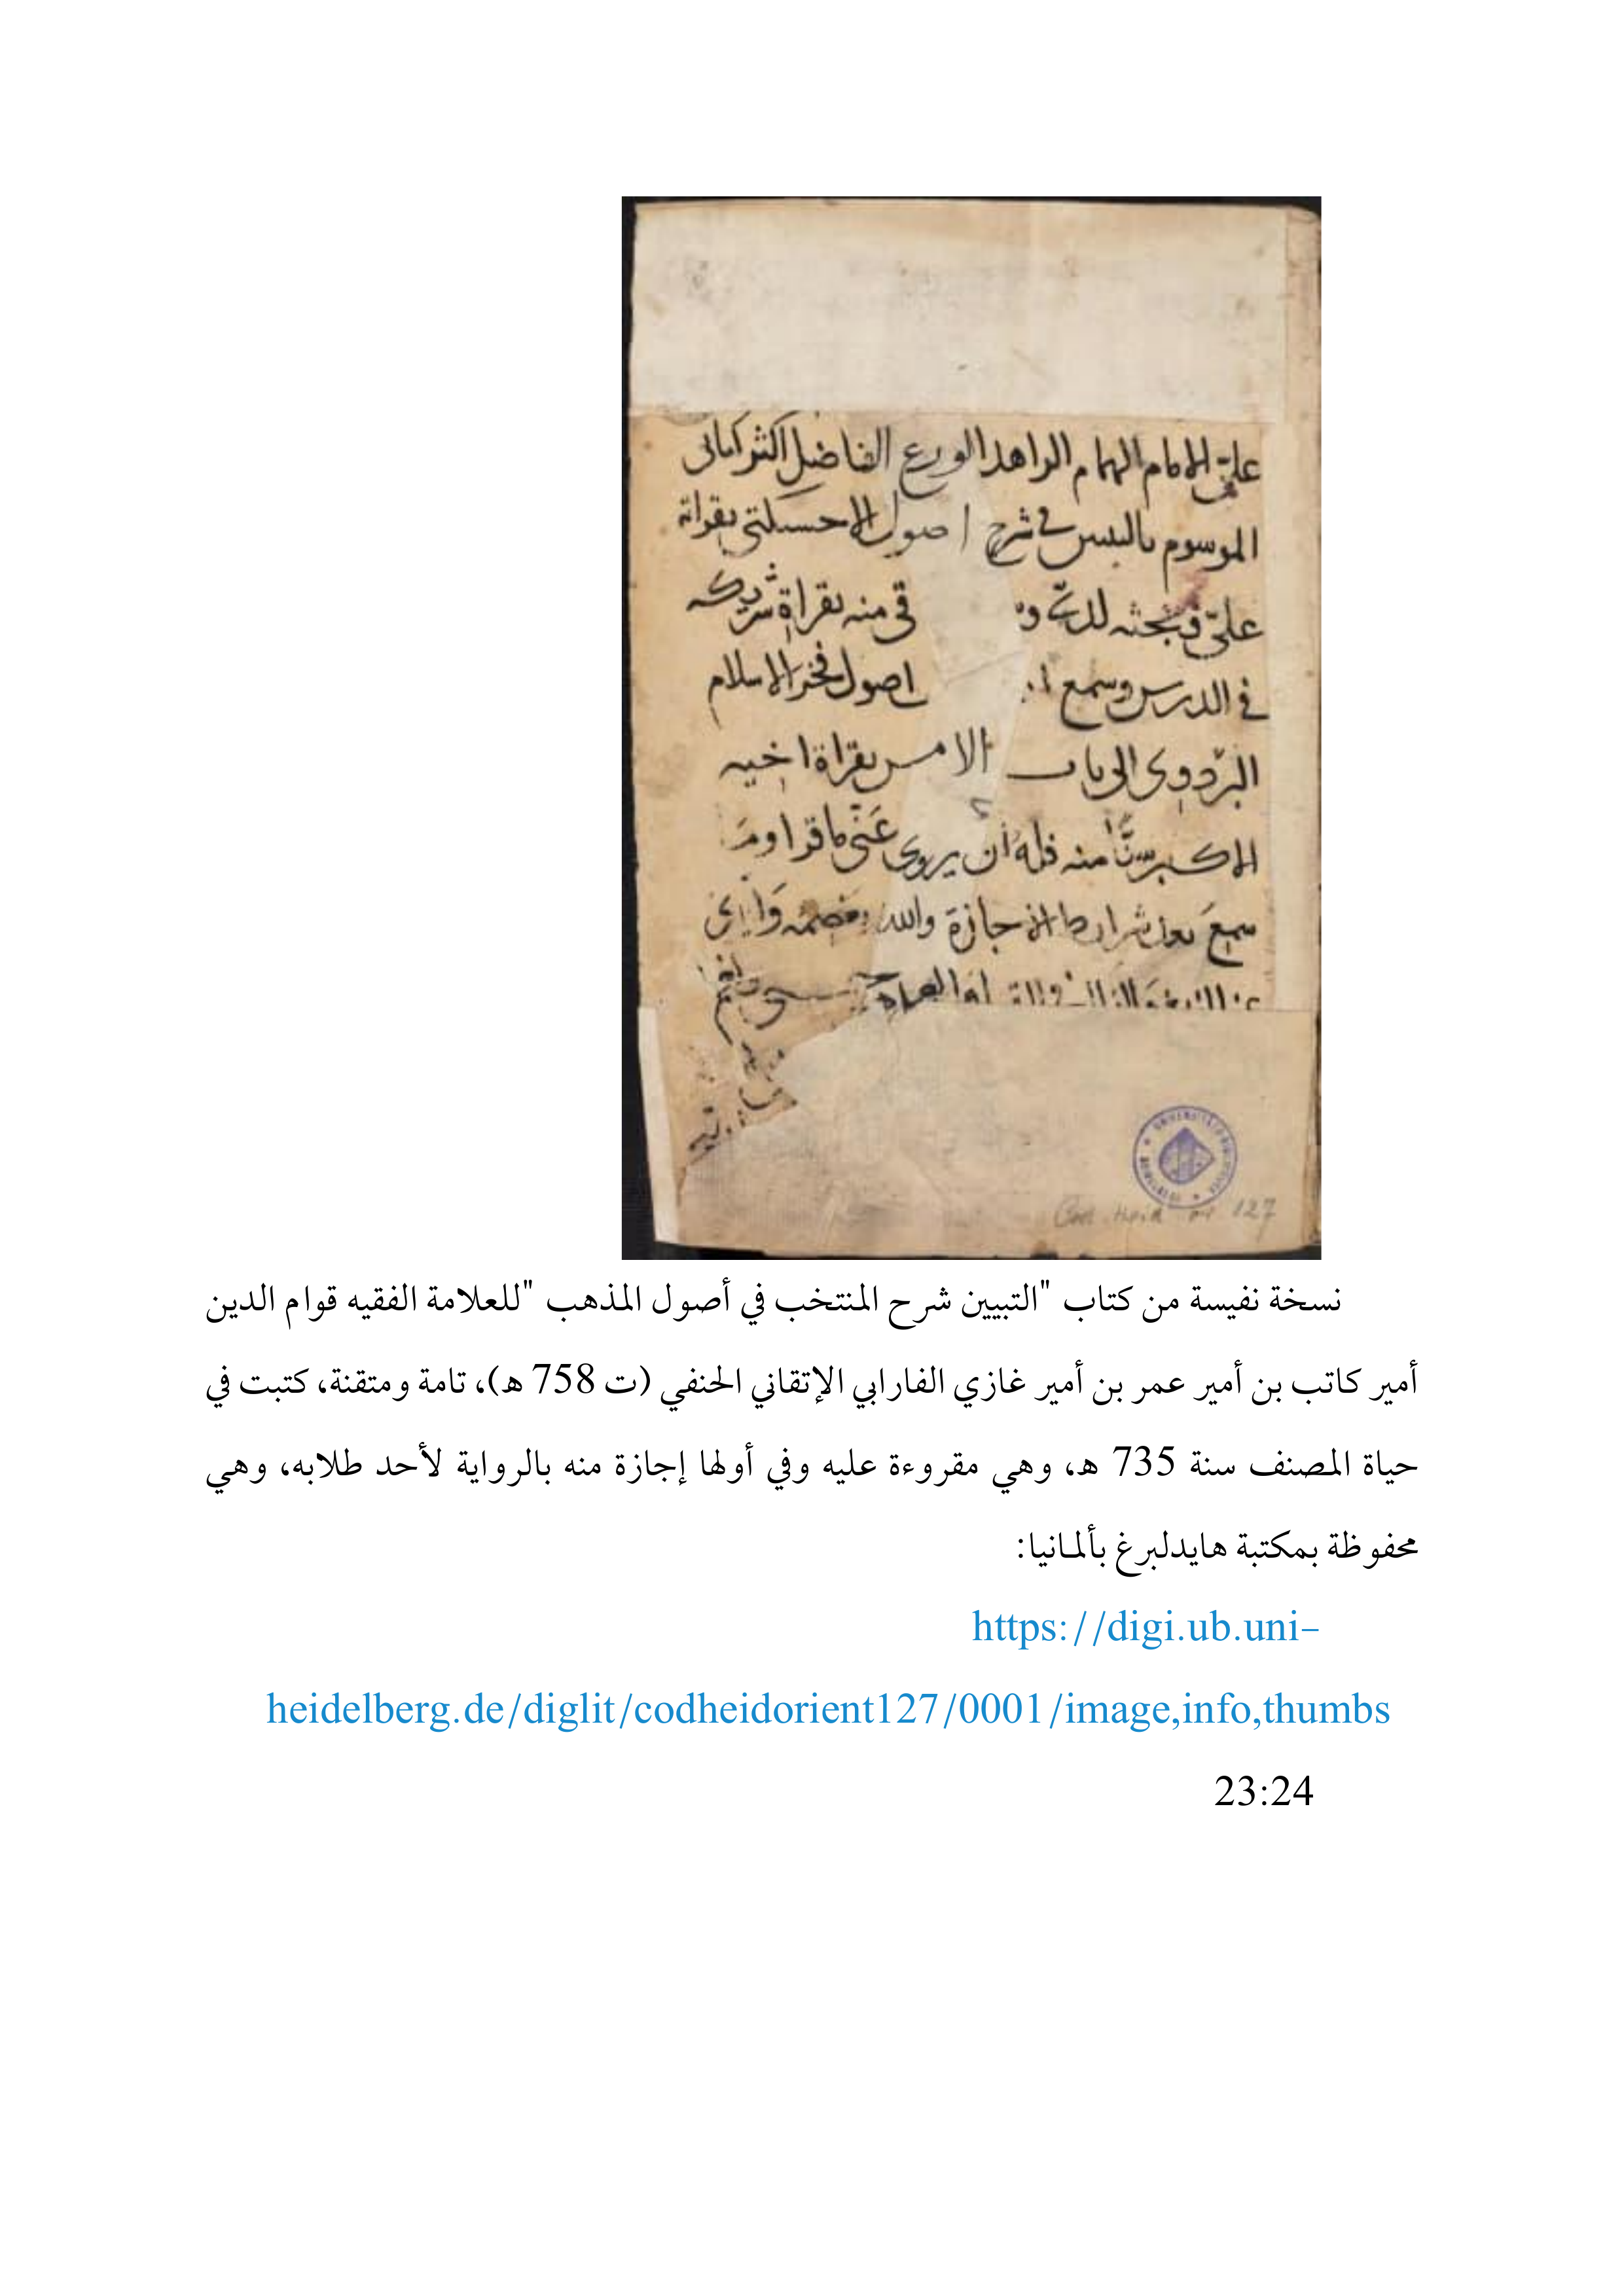 علي الامام الهمام الزاهد الورع الفاضل اكثر كتابي
الموسوم بالتبيين في شرح اصول الاخسيكتي بقراته
عليّ في بحثه قي منه بقراة شريكه
في الدرس وسمع اصول فخر الاسلام
البزدوي الى باب الامر بقراة اخيه
الاكبر سنًّا منه فله أن يروي عَنّي ما قرا وم
سمعَ بعد شرايط الاجازة والله
Cod. Heid. or. 127
نسخة نفيسة من كتاب "التبيين شرح المنتخب في أصول المذهب "للعلامة الفقيه قوام الدين
أمير كاتب بن أمير عمر بن أمير غازي الفارابي الإتقاني الحنفي (ت 758 هـ)، تامة ومتقنة، كتبت في
حياة المصنف سنة 735 هـ، وهي مقروءة عليه وفي أولها إجازة منه بالرواية لأحد طلابه، وهي
محفوظة بمكتبة هايدلبرغ بألمانيا:
https://digi.ub.uni-
heidelberg.de/diglit/codheidorient127/0001/image,info,thumbs
23:24